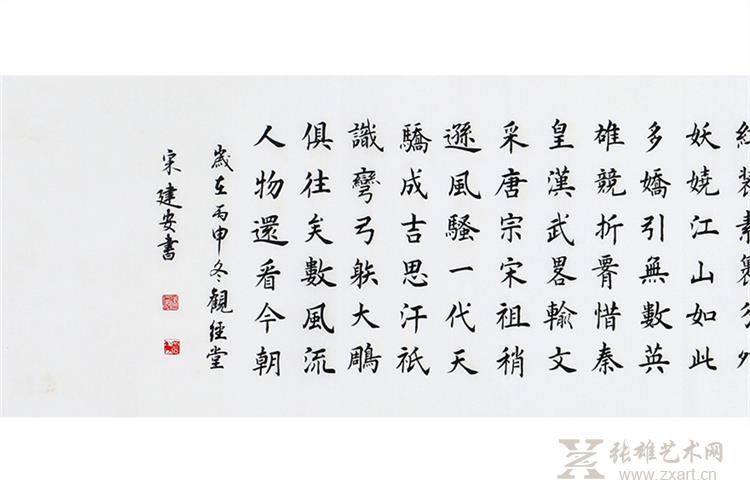 紅裝素裹分外
妖嬈江山如此
多嬌引無數英
雄競折腰惜秦
皇漢武畧輸文
采唐宗宋祖稍
遜風騷一代天
驕成吉思汗祇
識彎弓䠶大鵰
俱往矣數風流
人物還看今朝
歲在丙申冬觀經堂
宋建安書
张雄艺术网
www.zxart.cn